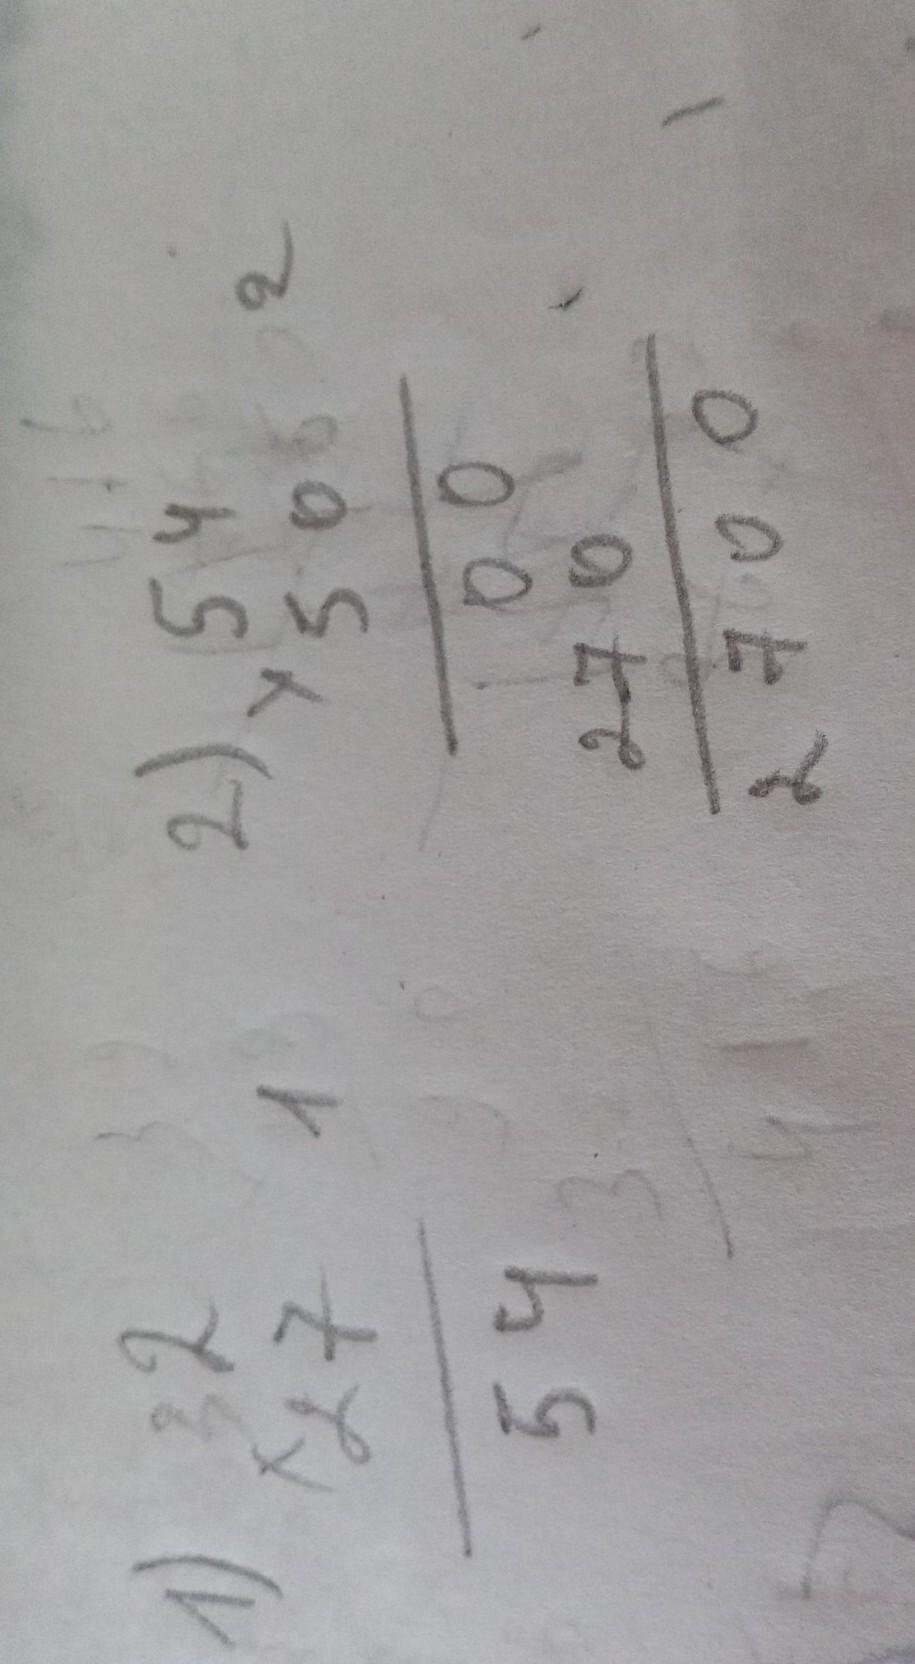 1) 2
x27 1
54
2) 54
x50 2
00
270
2700